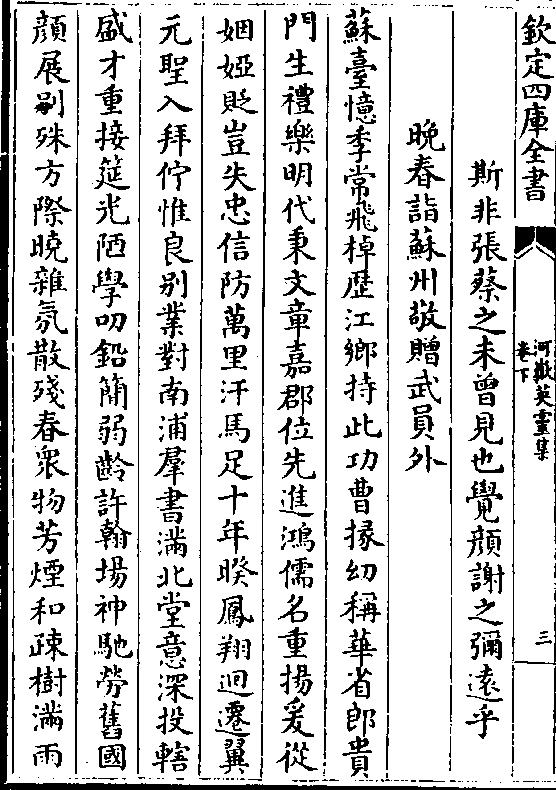 欽定四庫全書
河嶽英靈集
卷下
三
斯非張蔡之未曾見也覺顔謝之彌遠乎
晚春詣蘇州敬贈武員外
蘇臺憶季常飛棹歷江鄉持此功曹掾幼稱華省郎貴
門生禮樂明代秉文章嘉郡位先進鴻儒名重揚爰從
姻婭貶豈失忠信防萬里汗馬足十年暌鳳翔迴遷翼
元聖入拜佇惟良别業對南浦羣書滿北堂意深投轄
盛才重接筵光陋學叨鉛簡弱齡許翰場神馳勞舊國
顔展别殊方際曉雜氛散殘春衆物芳煙和疎樹滿雨